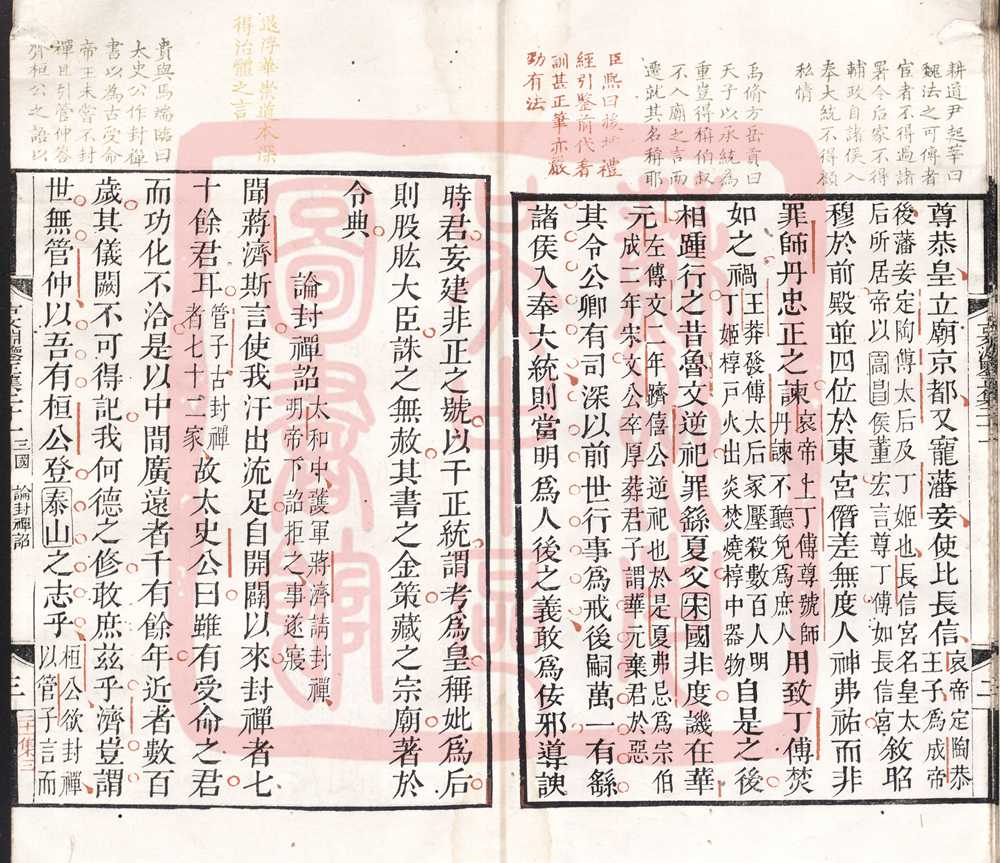 耕道尹起莘曰
魏法之可傳者
宦者不得過諸
署令后家不得
輔政自諸侯入
奉大統不得顧
私情
禹脩方岳貢曰
天子以承統為
重豈得稱伯叔
不入廟之言而
遷就其名稱耶
臣熙曰援據禮
經引鑒前代者
訓甚正筆亦嚴
勁有法
尊恭皇立廟京都又寵藩妾使比長信哀帝定陶恭王子為成帝
後藩妾定陶傅太后及丁姬也長信宮名皇太后所居帝以高昌侯董宏言尊丁傅如長信宮敘昭
穆於前殿並四位於東宮僭差無度人神弗祐而非
罪師丹忠正之諫哀帝上丁傅尊號師丹諫不聽免爲庶人用致丁傅焚
如之禍王莽發傅太后冢壓殺數百人明丁姬椁戶火出炎焚燒椁中器物自是之後
相踵行之昔魯文逆祀罪繇夏父宋國非度譏在華
元左傳文二年躋僖公逆祀也於是夏弗忌為宗伯成二年宋文公卒厚葬君子謂華元棄君於惡
其令公卿有司深以前世行事爲戒後嗣萬一有繇
諸侯入奉大統則當明爲人後之義敢爲佞邪導諛
退浮華崇道本深
得治體之言
費與馬端臨曰
太史公作封禪
書以為古受命
帝王未嘗不封
禪且引管仲答
齊桓公之語以
時君妄建非正之號以干正統謂考爲皇稱妣爲后
則股肱大臣誅之無赦其書之金策藏之宗廟著於
令典
論封禪詔太和中護軍蔣濟請封禪明帝下詔拒之事遂寢
聞蔣濟斯言使我汗出流足自開闢以來封禪者七
十餘君耳管子古封禪者七十二家故太史公曰雖有受命之君
而功化不洽是以中間廣遠者千有餘年近者數百
歲其儀闕不可得記我何德之修敢庶茲乎濟豈謂
世無管仲以吾有桓公登泰山之志乎桓公欲封禪以管子言而
三國 論封禪詔
三
二